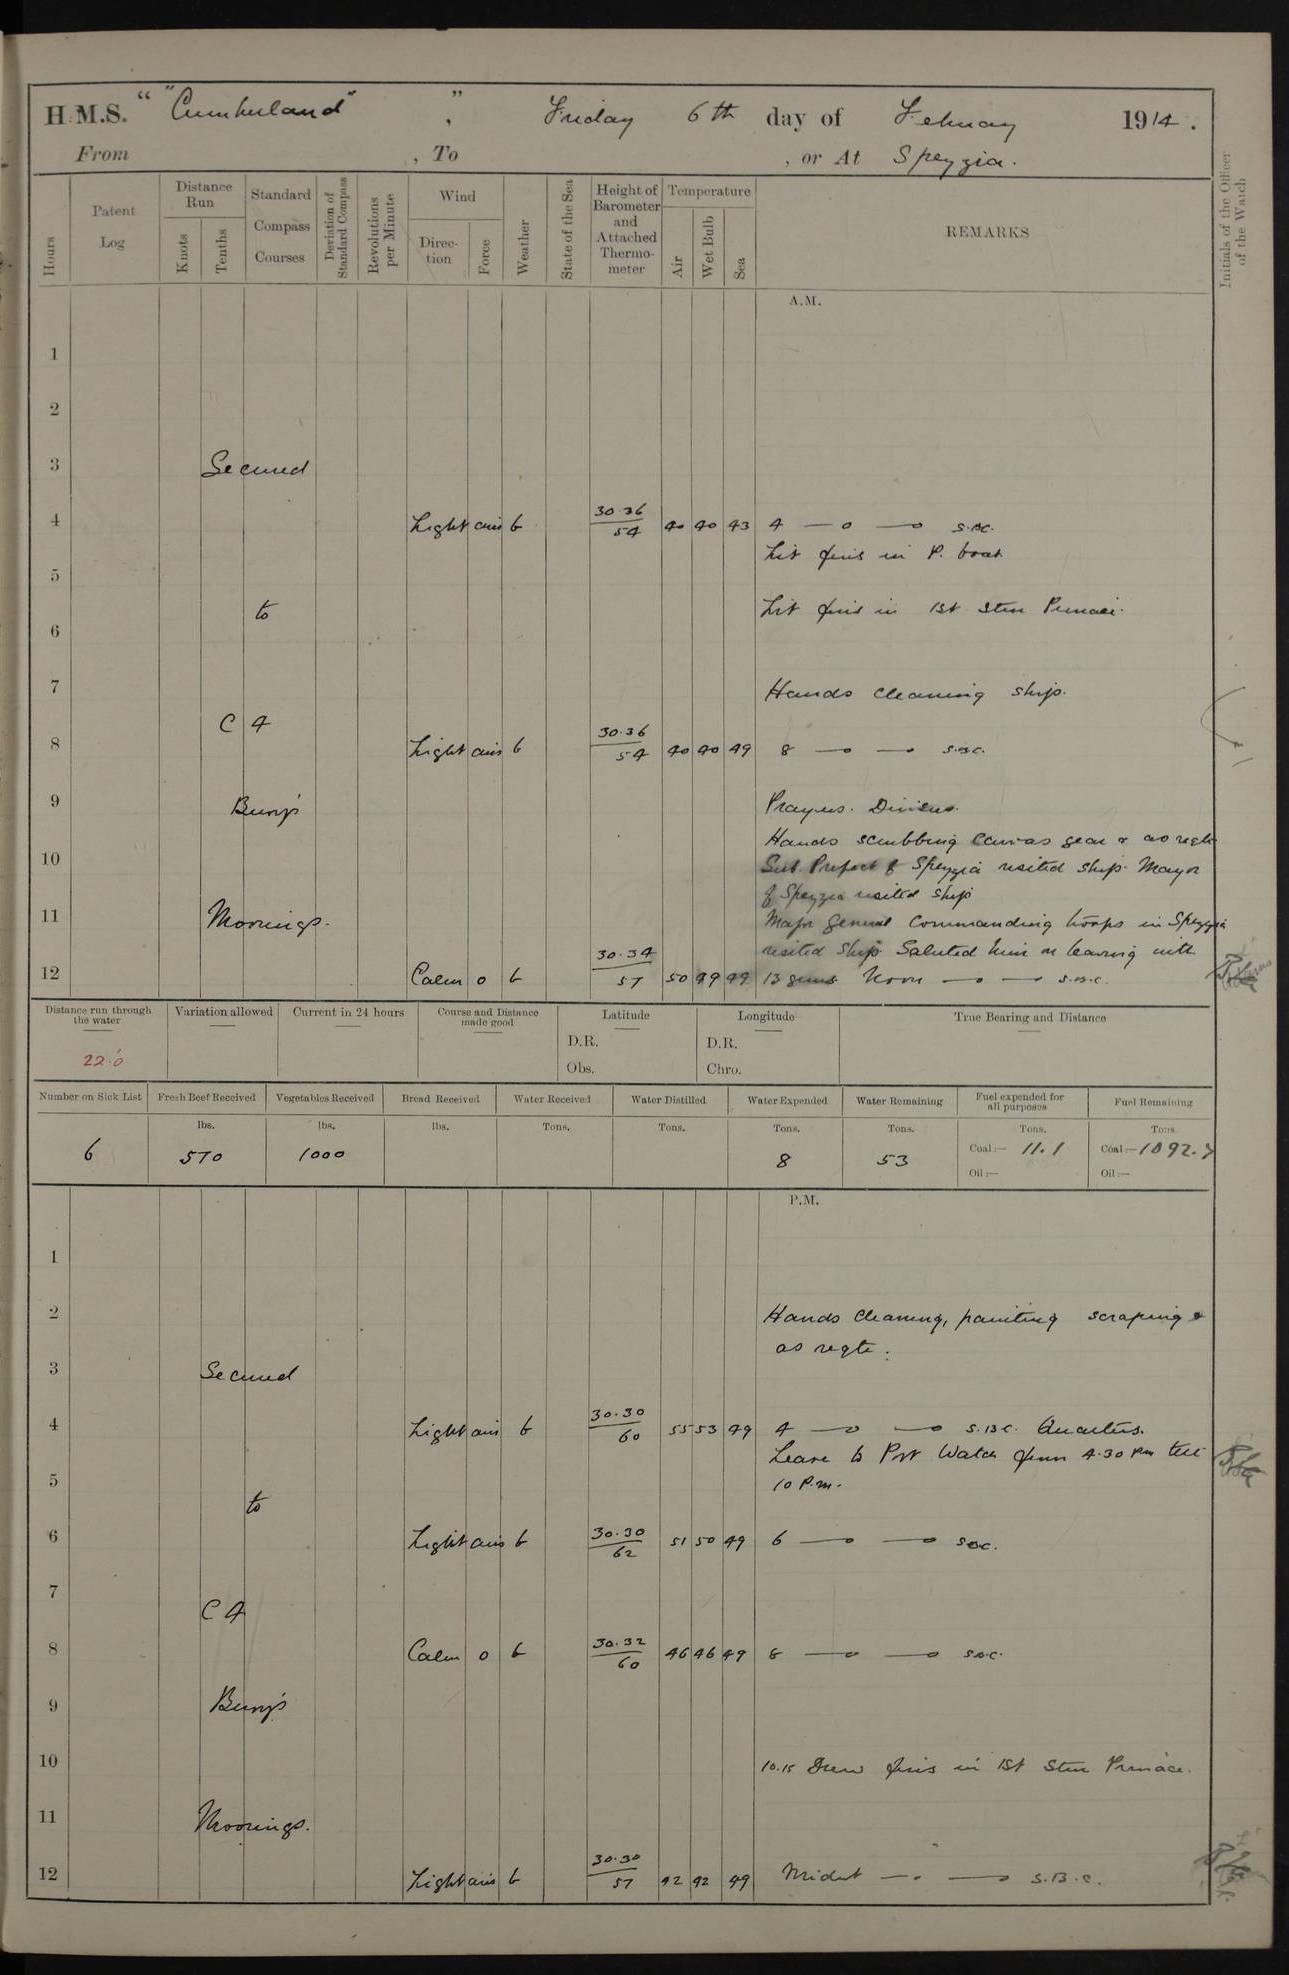 H.M.S. " "Cumberland" " , Friday 6th day of February 1914.
From , To , or At Spezzia.
Hours Patent Log Distance Run Knots Tenths Standard Compass Courses Deviation of Standard Compass Revolutions per Minute Wind Direc-tion Force Weather State of the Sea Height of Barometer and Attached Thermo-meter Temperature Air Wet Bulb Sea REMARKS Initials of the Officer of the Watch
A.M.
1
2
3 Secured
4 Light airs b 30.36 54 40 40 43 4 — o — o S.B.C.
Lit fires in P. boat
5
to Lit fires in 1st Stm Pinnace.
6
7 Hands cleaning ship.
C 4
8 Light airs b 30.36 54 40 40 49 8 — o — o S.B.C.
9 Buoys Prayers. Divisions.
Hands scrubbing canvas gear & as reqte
10 Sub. Prefect of Spezzia visited ship. Mayor
of Spezzia visited ship
11 Moorings. Major General Commanding troops in Spezzia
visited ship Saluted him on leaving with
12 Calm 0 b 30.34 57 50 49 49 13 guns. Noon — o — o S.B.C.
Distance run through the water Variation allowed Current in 24 hours Course and Distance made good Latitude Longitude True Bearing and Distance
D.R. D.R.
22.0 Obs. Chro.
Number on Sick List Fresh Beef Received Vegetables Received Bread Received Water Received Water Distilled Water Expended Water Remaining Fuel expended for all purposes Fuel Remaining
lbs. lbs. lbs. Tons. Tons. Tons. Tons. Tons. Tons.
6 570 1000 8 53 Coal:— 11.1 Coal:—1092.7
Oil:— Oil:—
P.M.
1
2 Hands cleaning, painting scraping &
as reqte.
3 Secured
4 Light airs b 30.30 60 55 53 49 4 — o — o S.B.C. Quarters.
Leave to Port Watch from 4.30 pm till
5 10 P.m.
to
6 Light airs b 30.30 62 51 50 49 6 — o — o S.B.C.
7
C 4
8 Calm 0 b 30.32 60 46 46 49 8 — o — o S.B.C.
9 Buoys
10 10.15 Drew fires in 1st Stm Pinnace.
11 Moorings.
12 Light airs b 30.30 57 42 42 49 Midnt — o — o S.B.C.